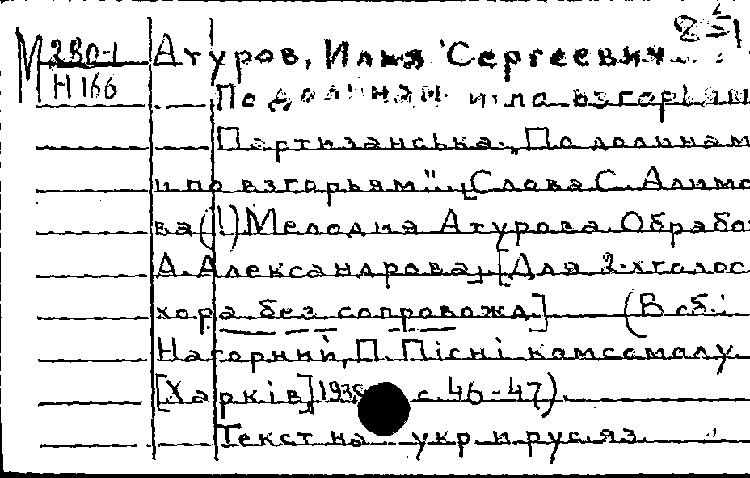 251
М 280-1 Атуров, Илья Сергеевич
Н 166
По долинам и по взгорьям
Партизанська. "По долинам
и по взгорьям". [Слова С. Алимо
ва(!) Мелодия Атурова. Обрабо
А. Александрова]. [Для 2-хголос
хора без сопровожд.] (В сб.:
Нагорний, П. Пісні комсомолу.
[Харків] с. 46-47).
Текст на укр. и рус. яз.